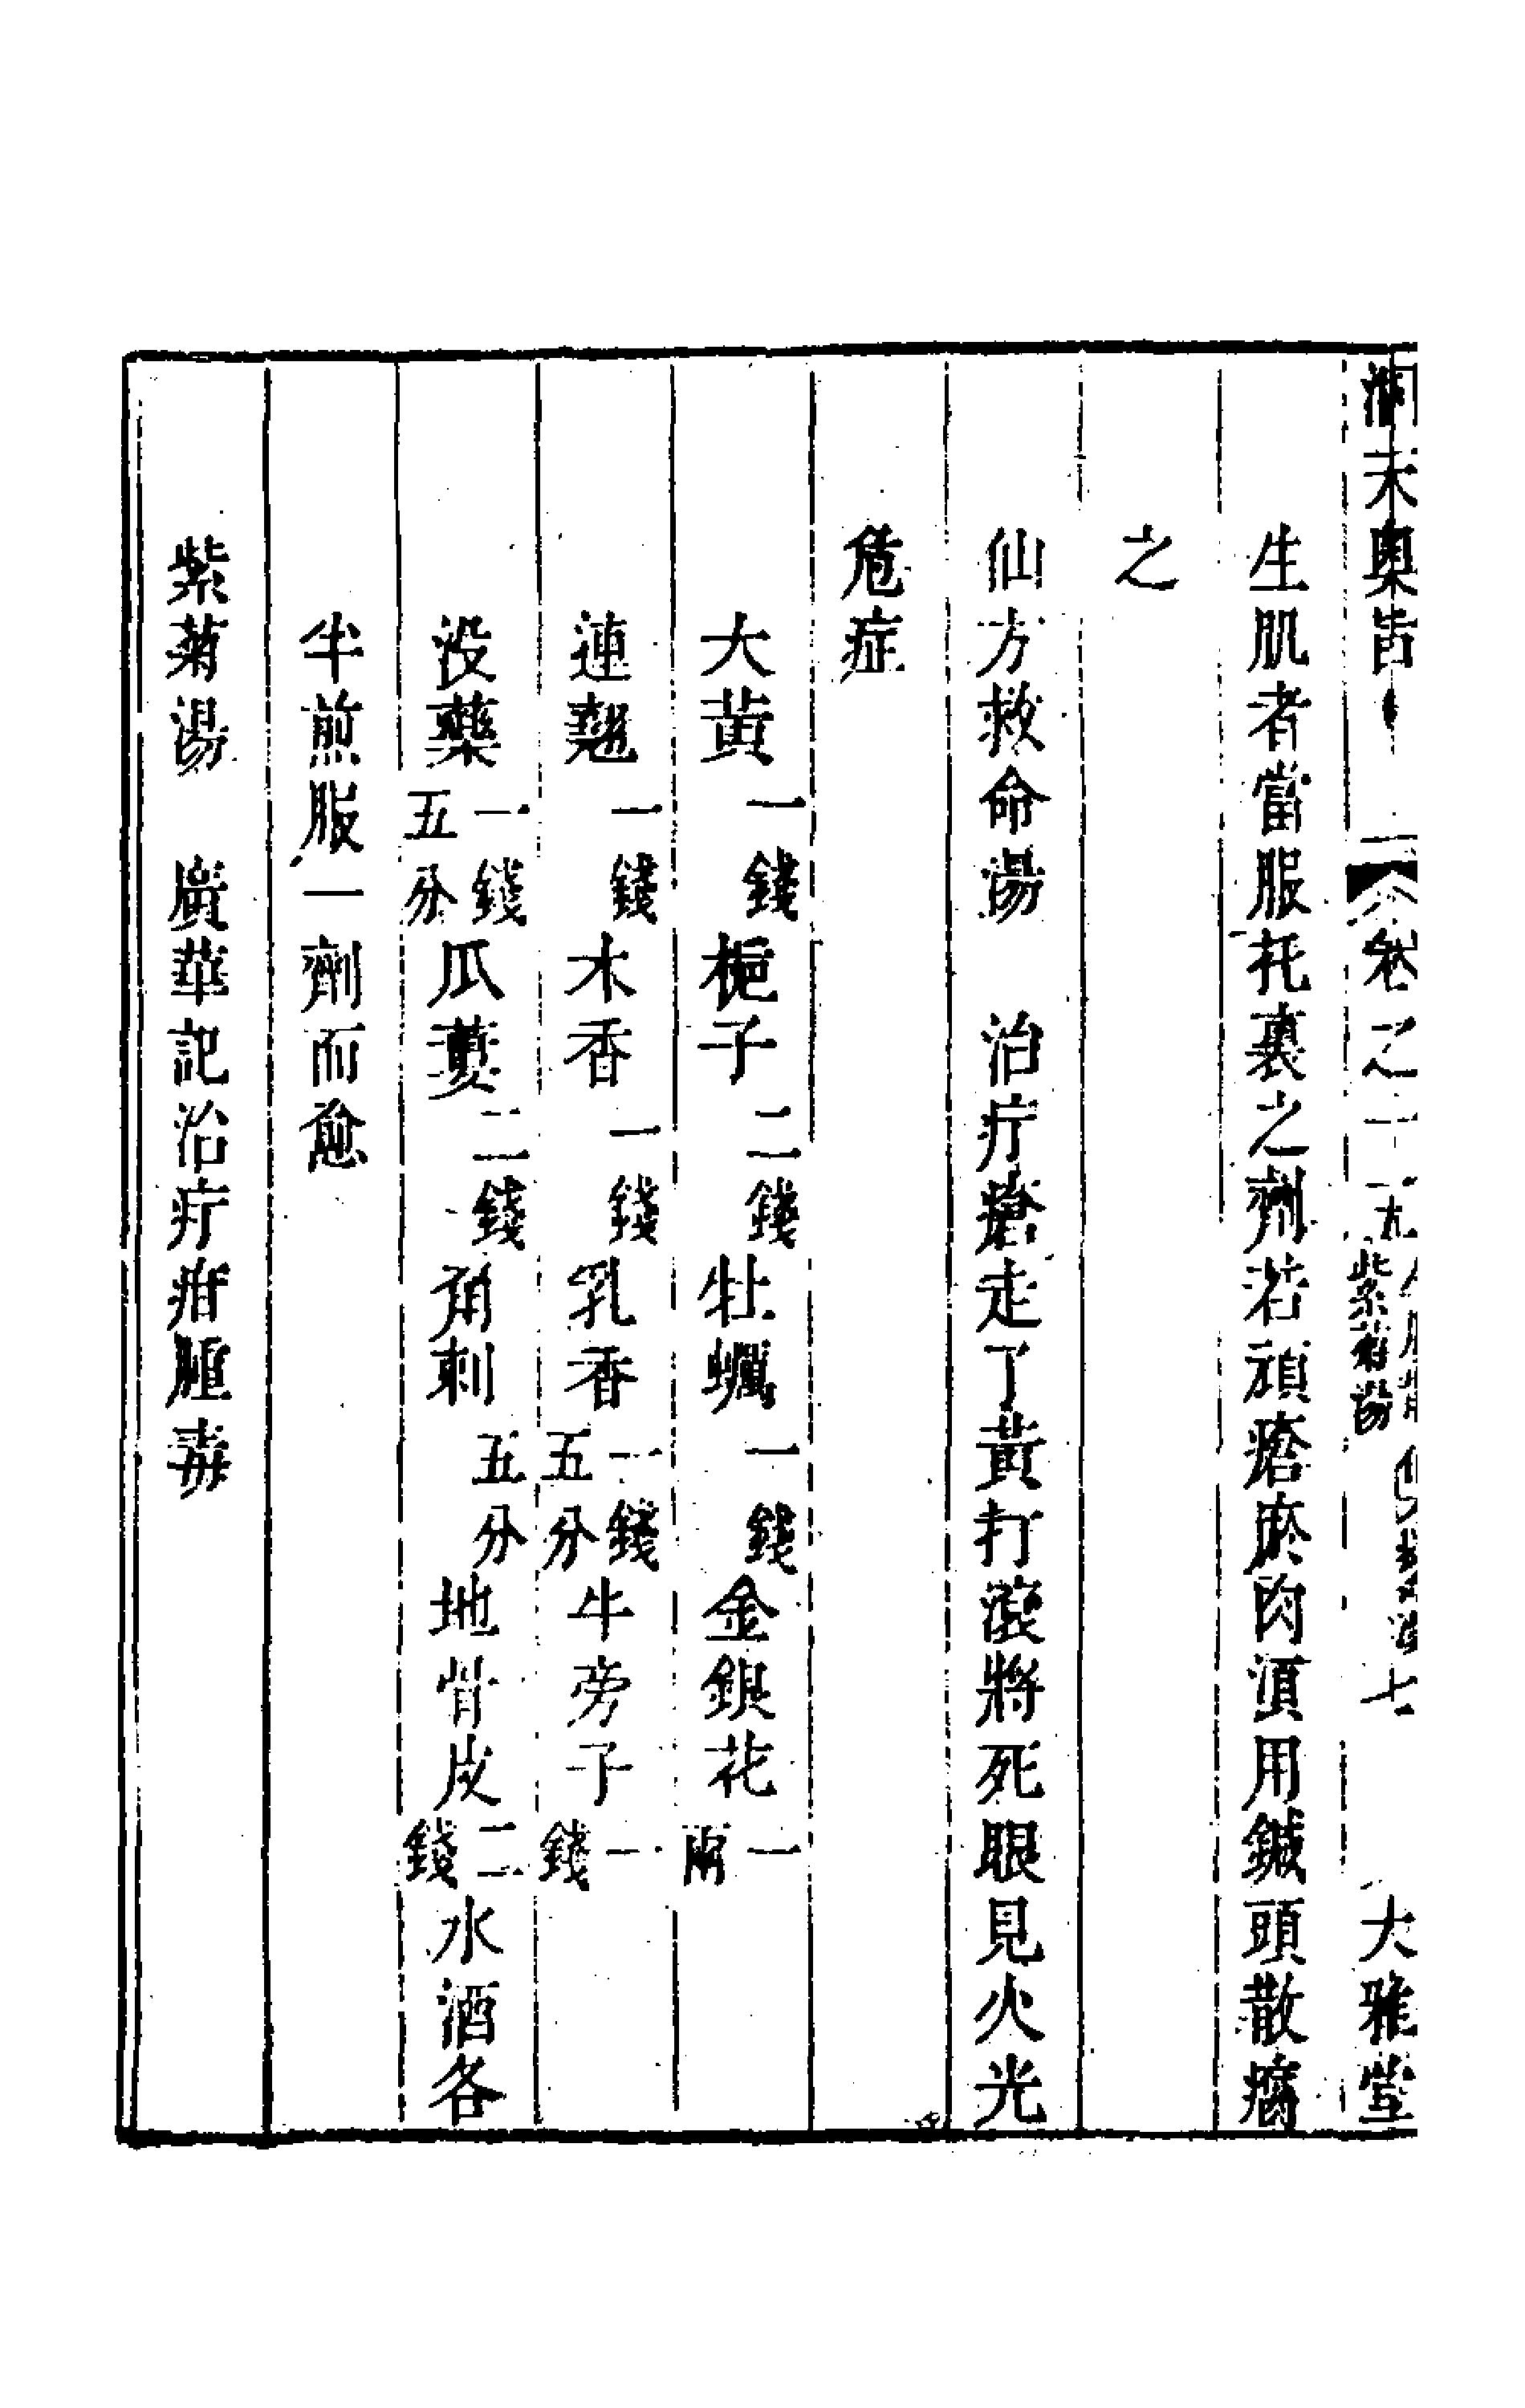 洞天奥旨 卷之十九 紫菊湯 七 大雅堂
生肌者當服托裏之劑若頑瘡瘀肉須用鍼頭散腐
之
仙方救命湯 治疔瘡走了黃打滾將死眼見火光
危症
大黃一錢梔子二錢牡蠣一錢金銀花一兩
連翹一錢木香一錢乳香一錢五分牛旁子一錢
没藥一錢五分瓜蔞二錢角刺五分地骨皮二錢水酒各
半煎服一劑而愈
紫菊湯 廣華記治疔疳腫毒